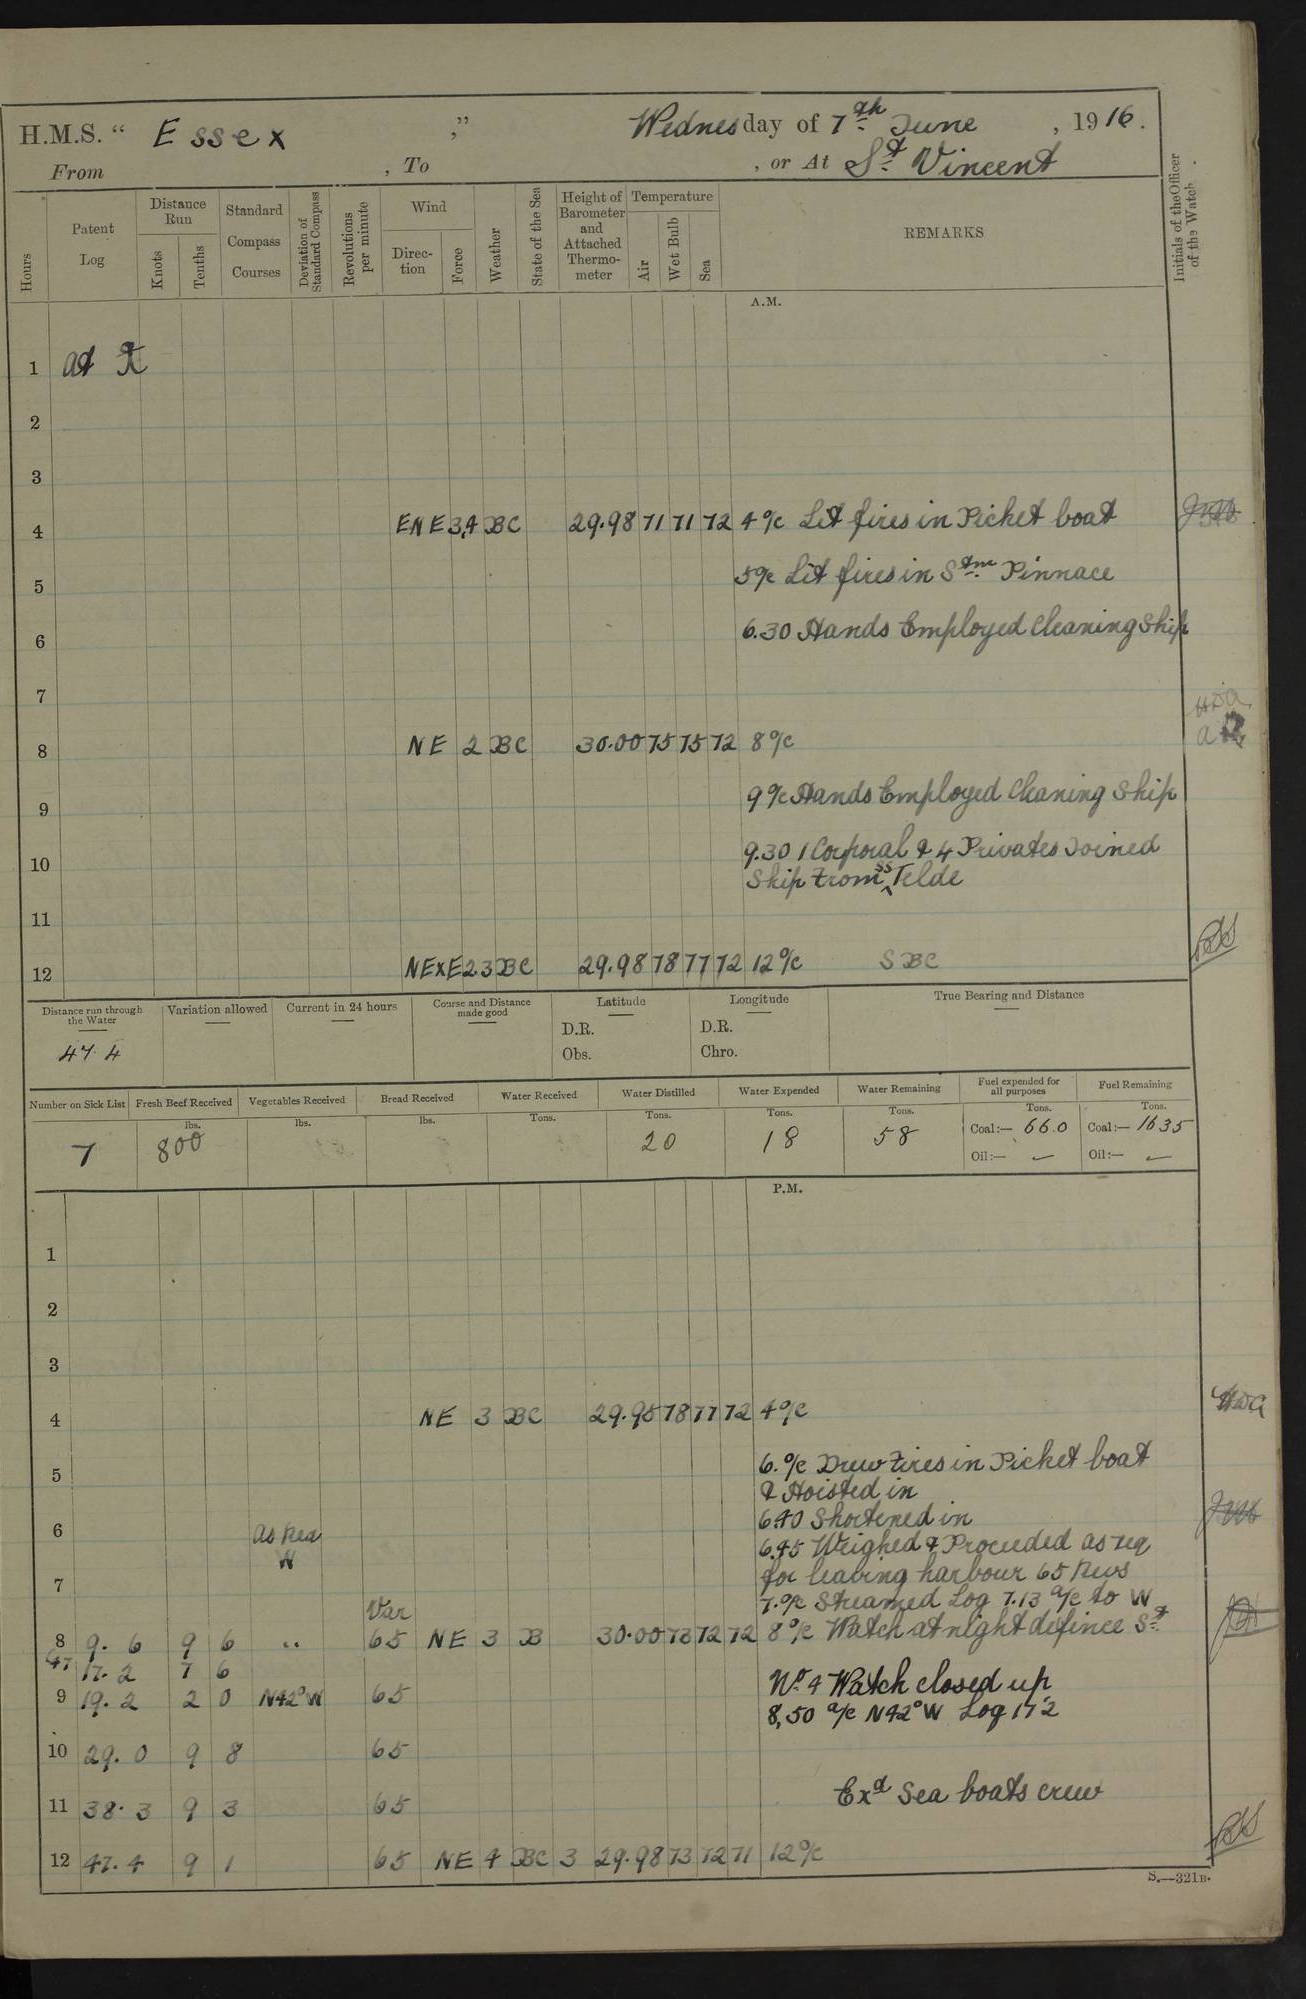 H.M.S. “ Essex ,” Wednesday of 7th June , 1916.
From , To , or At St Vincent
Hours
Patent Log
Distance Run
Knots
Tenths
Standard Compass Courses
Deviation of Standard Compass
Revolutions per minute
Wind
Direc-tion
Force
Weather
State of the Sea
Height of Barometer and Attached Thermo-meter
Temperature
Air
Wet Bulb
Sea
REMARKS
Initials of the Officer of the Watch.
A.M.
1 at
2
3
4 ENE 3.4 BC 29.98 71 71 72 4 o/c Lit fires in Picket boat
5 5 o/c Lit fires in Stm Pinnace
6 6.30 Hands Employed Cleaning Ship
7
8 NE 2 BC 30.00 75 75 72 8 o/c
9 9 o/c Hands Employed Cleaning Ship
10 9.30 1 Corporal & 4 Privates Joined
Ship from SS Telde
11
12 NExE 2.3 BC 29.98 78 77 72 12 o/c SBC
Distance run through the Water
47.4
Variation allowed
Current in 24 hours
Course and Distance made good
Latitude
D.R.
Obs.
Longitude
D.R.
Chro.
True Bearing and Distance
Number on Sick List
7
Fresh Beef Received
lbs.
800
Vegetables Received
lbs.
Bread Received
lbs.
Water Received
Tons.
Water Distilled
Tons.
20
Water Expended
Tons.
18
Water Remaining
Tons.
58
Fuel expended for all purposes
Tons.
Coal:— 66.0
Oil:— –
Fuel Remaining
Tons.
Coal:— 1635
Oil:— –
P.M.
1
2
3
4 NE 3 BC 29.95 78 77 72 4 o/c HDA
5 6. o/c Drew fires in Picket boat
& Hoisted in
6.40 Shortened in
6 as Req 6.45 Weighed & Proceeded as req
W for leaving harbour 65 Revs
7 7. o/c Streamed Log 7.13 a/c to W
Var
8 9.6 9 6 " 65 NE 3 B 30.00 73 72 72 8 o/c Watch at night defince St
47 17.2 7 6 No. 4 Watch closed up
9 19.2 2 0 N42°W 65 8,50 a/c N42°W Log 17'2
10 29.0 9 8 65
11 38.3 9 3 65 Exd Sea boats crew
12 47.4 9 1 65 NE 4 BC 3 29.98 73 72 71 12 o/c
S.—321B.